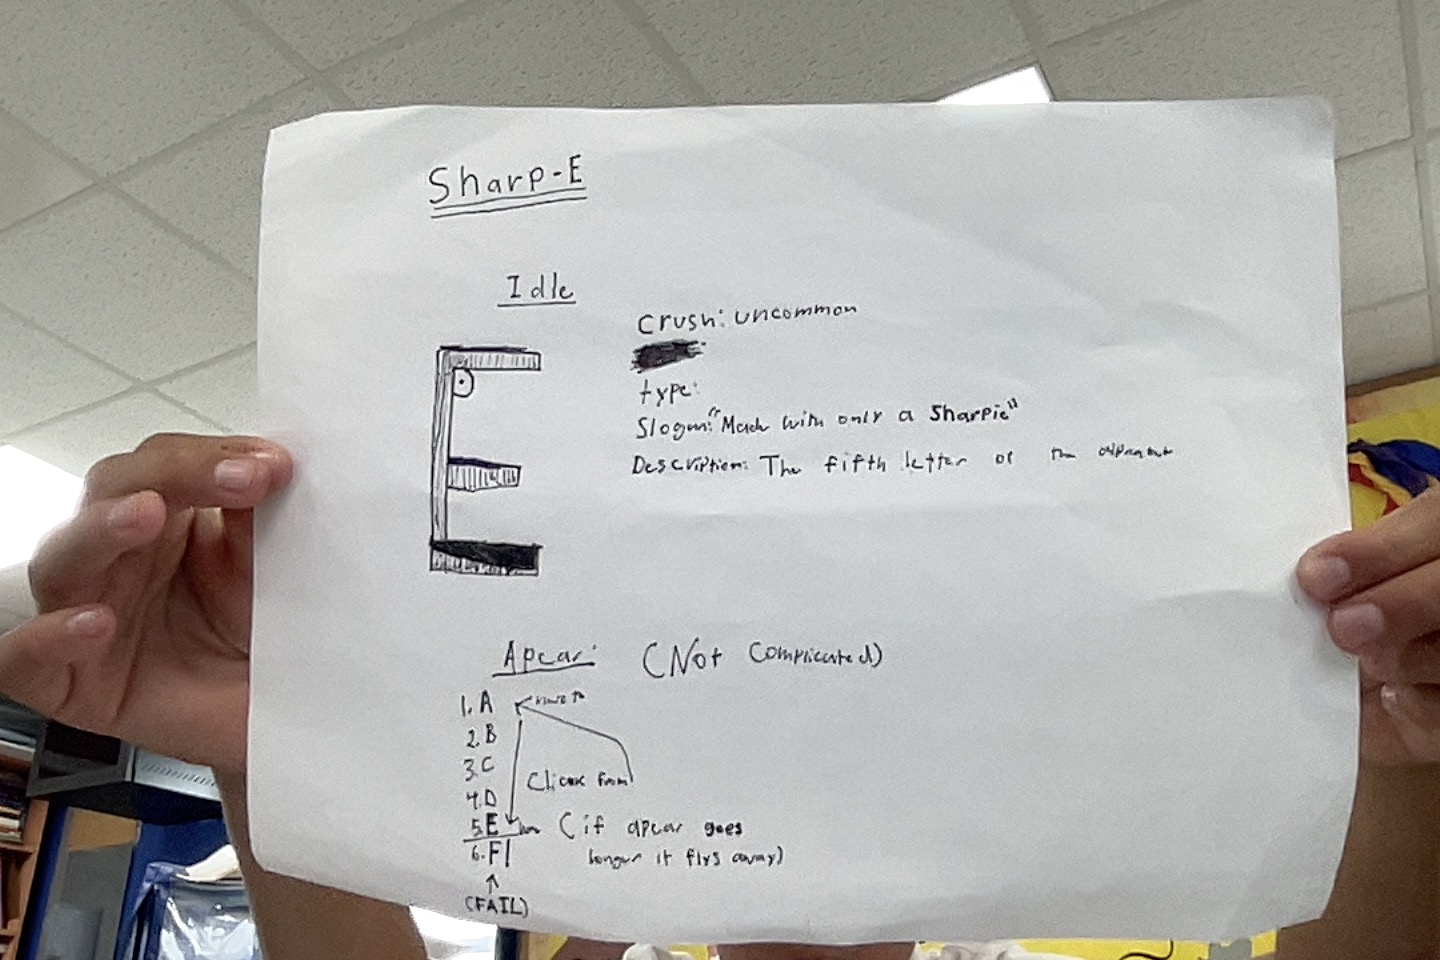 Sharp-E
Idle
Crush: uncommon
type:
Slogan: "Made with only a Sharpie"
Description: The fifth letter of the
Apear: (Not Complicated)
1. A
2. B
3. C
4. D
Click from
5. E (if apear goes
longer it flys away)
6. F
(FAIL)